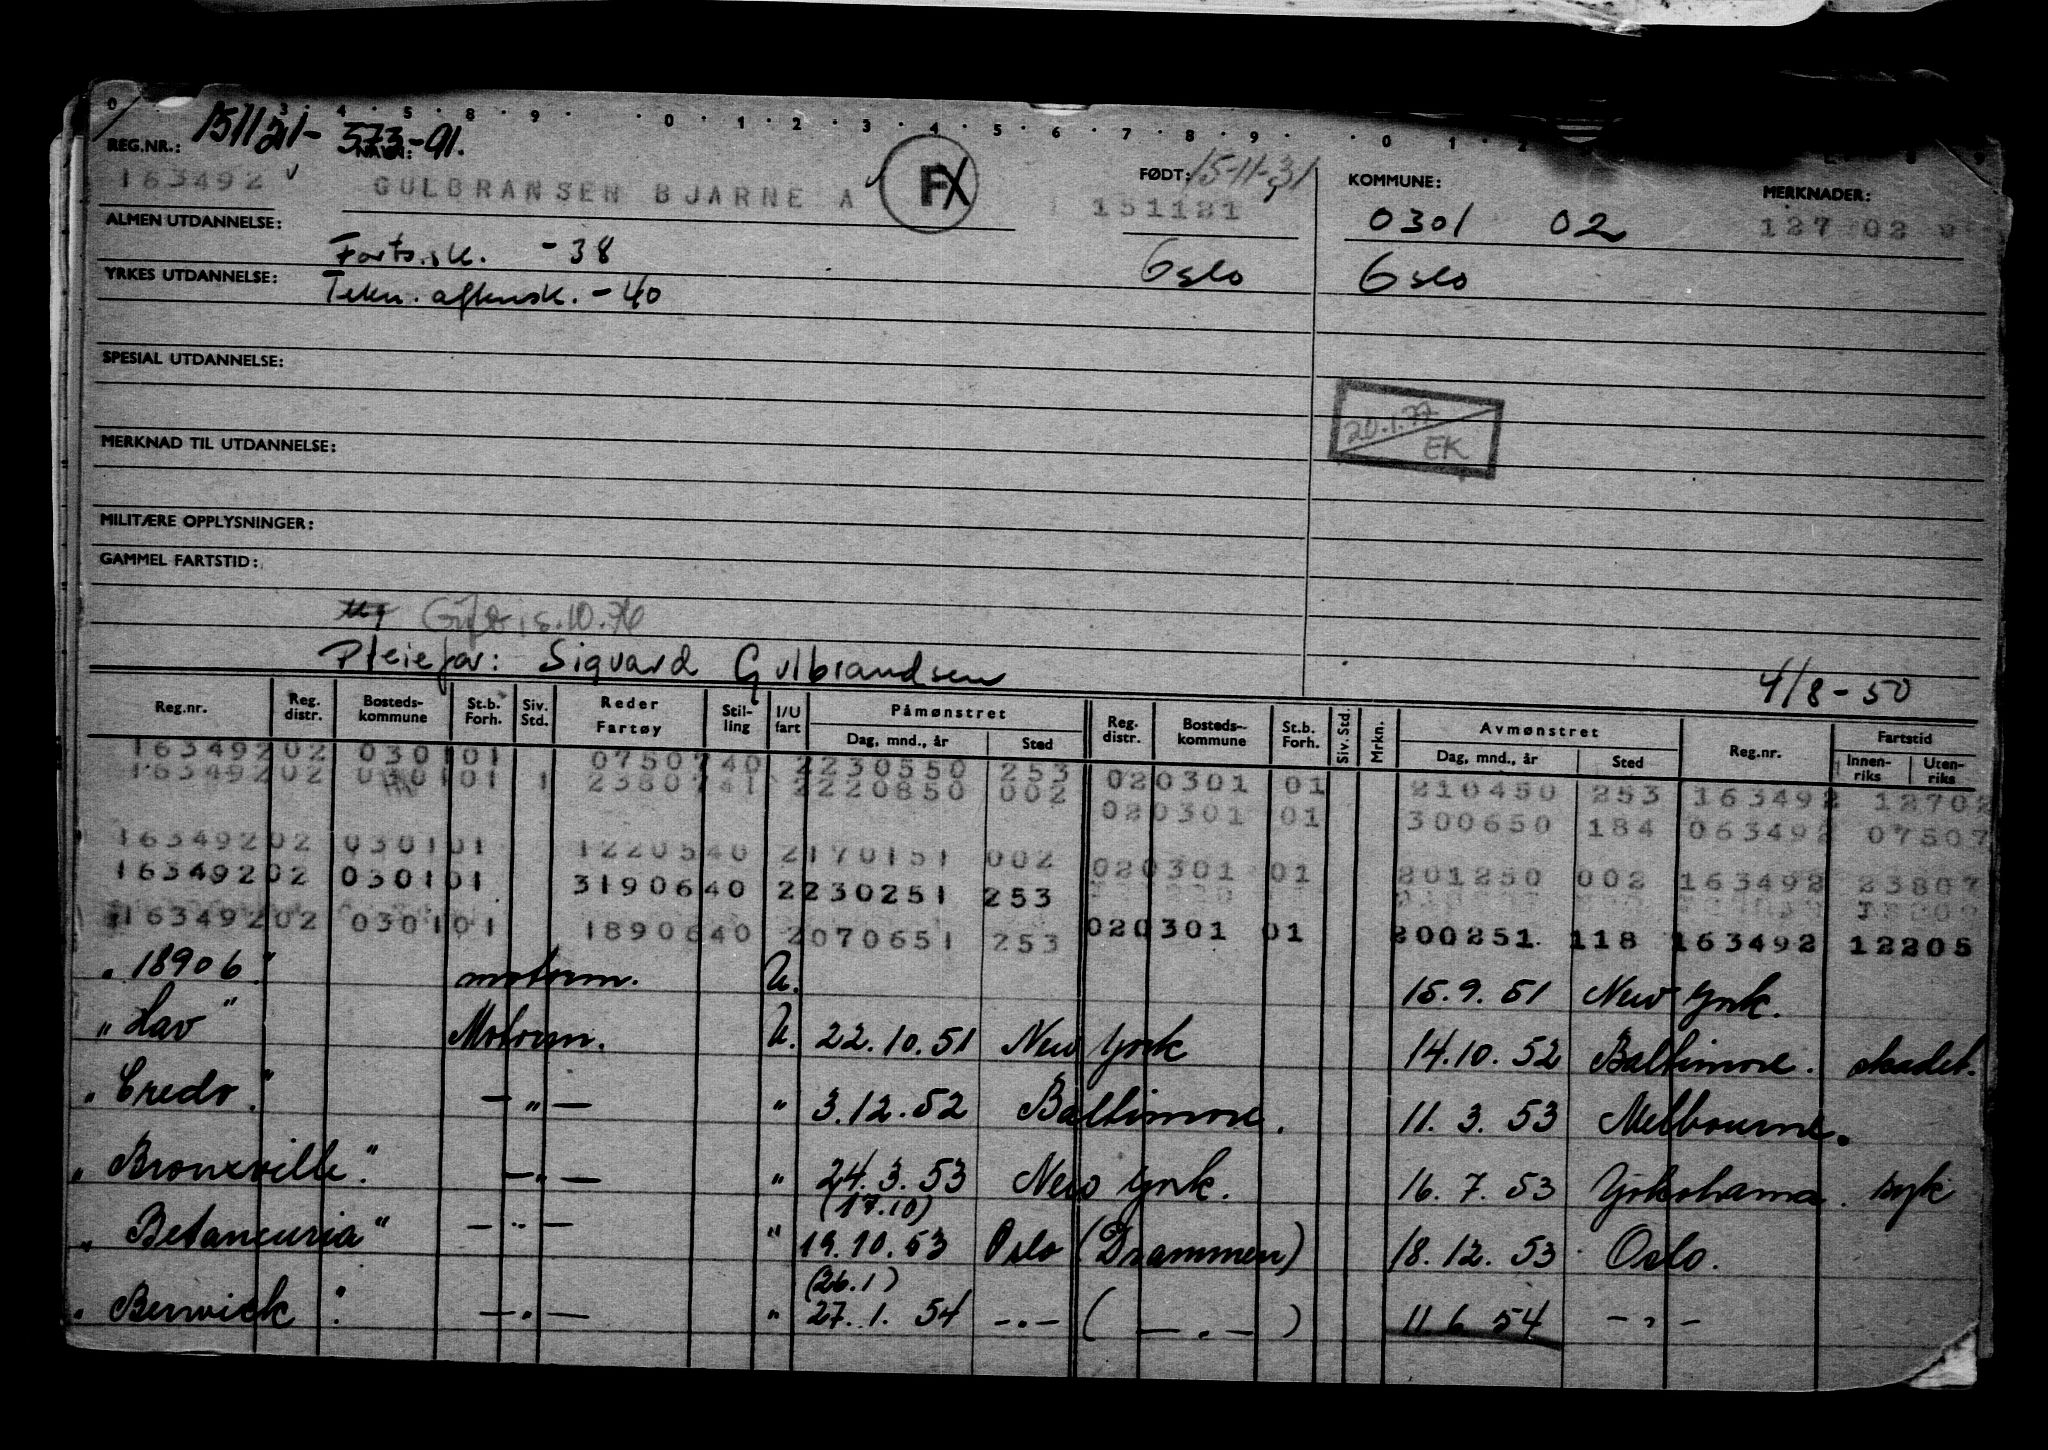 0 3 · 4 · 5 · 8 · 9 · · 0 · 1 · 2 · 3 · 4 · 5 · 6 · 7 · 8 · 9 · · 0 1 2
REG.NR.: 151121- 573-91. NAVN: FØDT: 15-11-31 KOMMUNE: MERKNADER:
163492 GULBRANSEN BJARNE A FX 151121 0301 02 127 02
ALMEN UTDANNELSE: Forts.sk. -38 Oslo Oslo
YRKES UTDANNELSE: Tekn. aftensk. -40
SPESIAL UTDANNELSE:
20.1.77
EK
MERKNAD TIL UTDANNELSE:
MILITÆRE OPPLYSNINGER:
GAMMEL FARTSTID:
Gift 15.10.76
Pleiefar: Sigvard Gulbrandsen 4/8-50
Reg.nr. Reg. distr. Bosteds-kommune St.b. Forh. Siv. Std. Reder Fartøy Stil-ling I/U fart Påmønstret Dag, mnd., år Sted Reg. distr. Bosteds-kommune St.b. Forh. Siv. Std. Mrkn. Avmønstret Dag, mnd., år Sted Reg.nr. Fartstid Innen-riks Uten-riks
16349202 030101 0750740 2230550 253 020301 01 210450 253 163492 12702
16349202 030101 1 2380741 2220850 002 020301 01 300650 184 063492 07507
16349202 030101 1220540 2170151 002 020301 01 201250 002 163492 23807
16349202 030101 3190640 2230251 253
16349202 030101 1890640 2070651 253 020301 01 200251 118 163492 12205
" 18906 " motorm. U. 15.9.51 New York.
" Hav " Motorm. U. 22.10.51 New York 14.10.52 Baltimore. skadet.
" Credo. " — " — " 3.12.52 Baltimore. 11.3.53 Melbourne.
" Bronxville. " — " — " 24.3.53 New York. 16.7.53 Yokohama. syk
(17.10)
" Betancuria " — " — " 19.10.53 Oslo (Drammen) 18.12.53 Oslo.
(26.1)
" Berwick " — " — " 27.1.54 — " — ( — " — ) 11.6.54 — " —